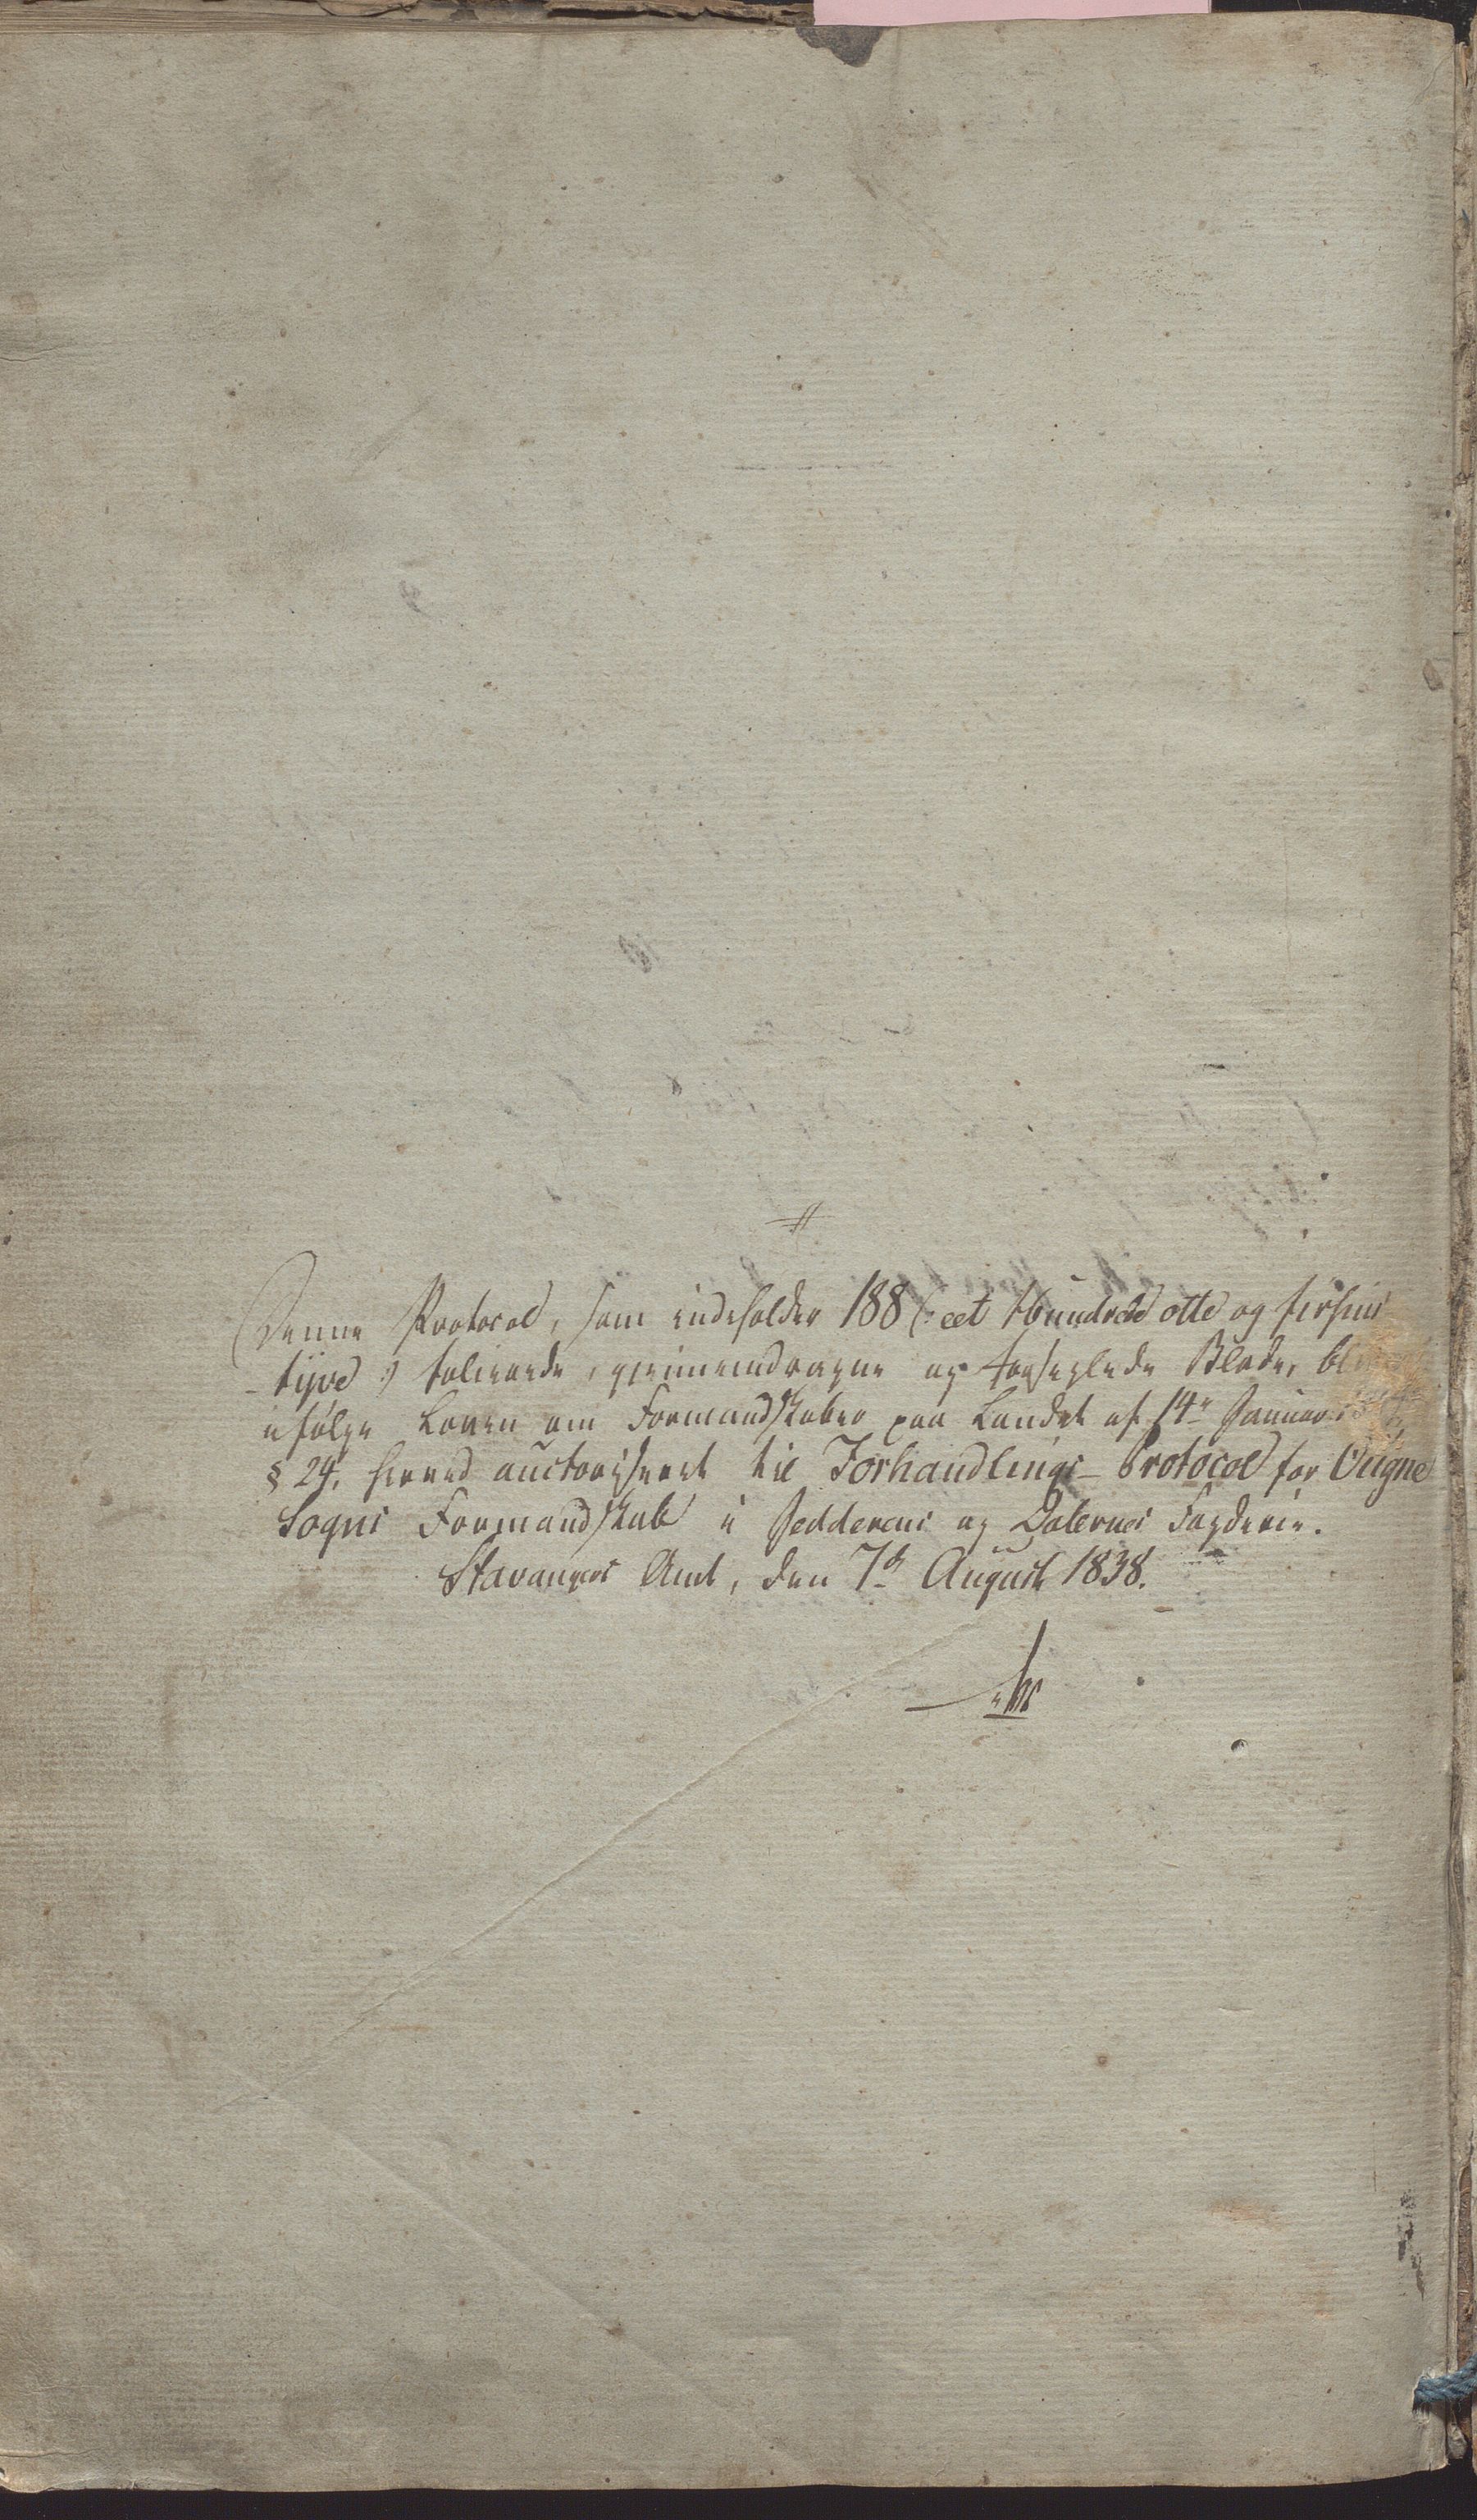 Denne Protocol, som indeholder 188 (: eet Hundrede otte og firsins
-tyve :) folierede, gjennemdragne og forseglede Blade, bliver
ifølge Loven om Formandskaber paa Landet af 14de Januar
§ 24, herved auctoriseret til Forhandlings-Protocol for Ougne
Sogns Formandskab i Jedderens og Dalernes Fogderie.
Stavangers Amt, den 7de August 1838.